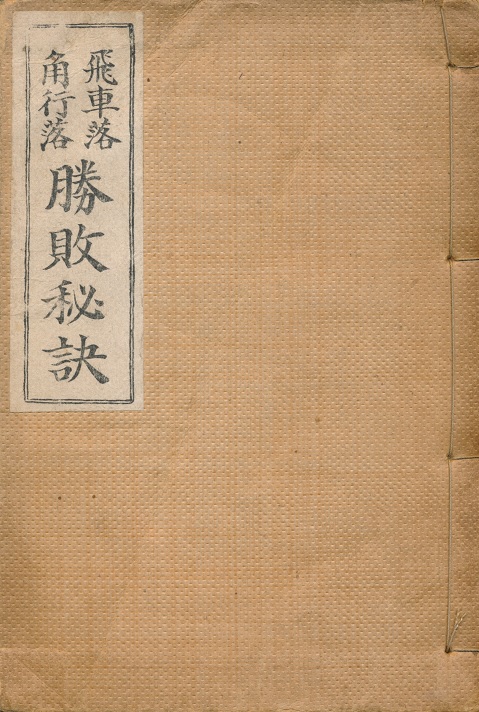 飛車落
角行落
勝敗秘訣